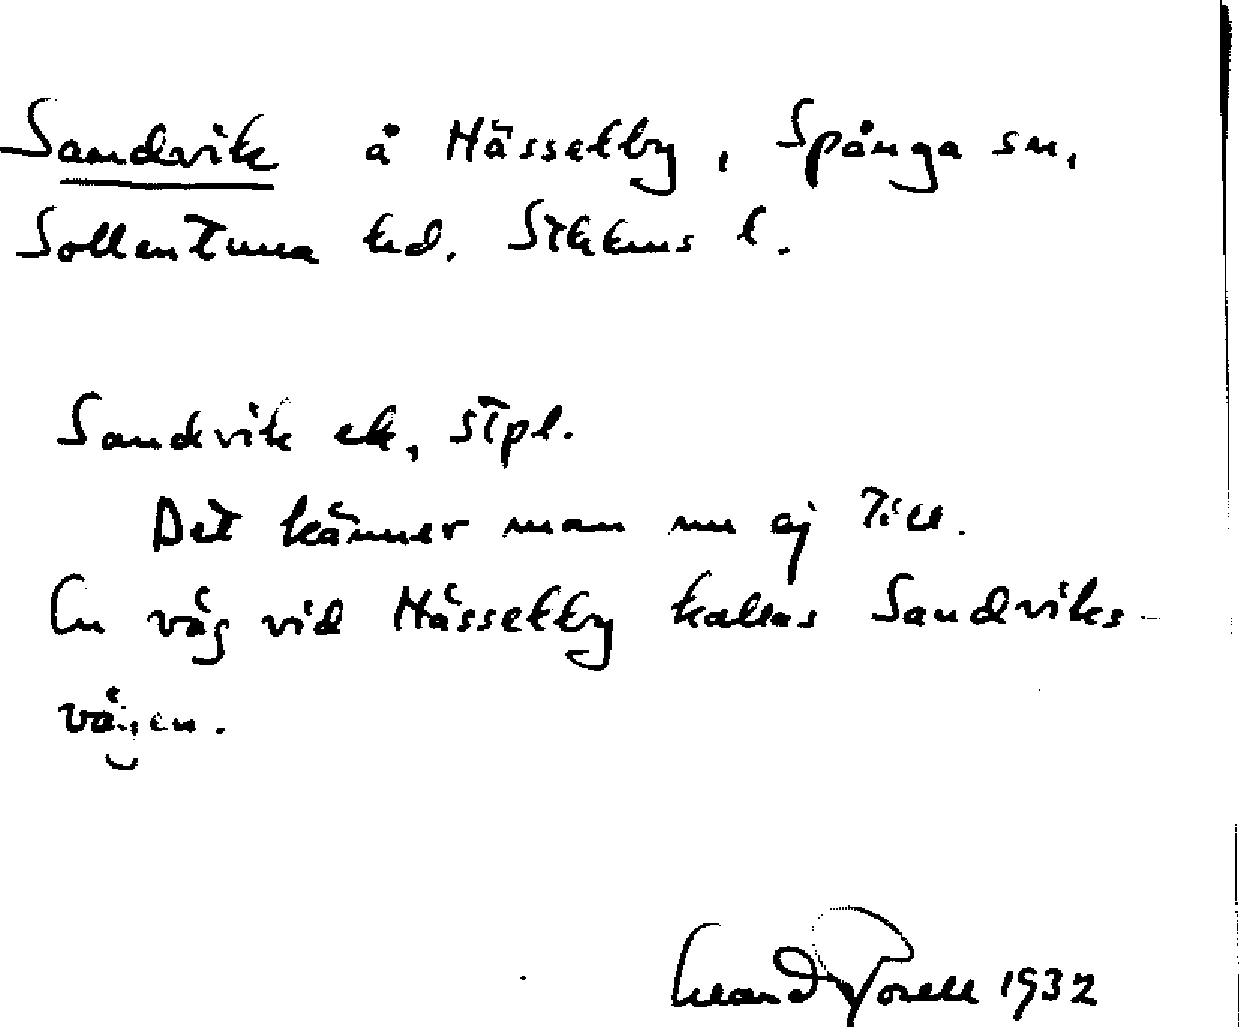 Sandvik å Hässelby, Spånga sn,
Sollentuna hd. Sthlms l.
Sandvik ek, stpl.
Det känner man nu ej till.
En väg vid Hässelby kallas Sandviks-
vägen.
1932